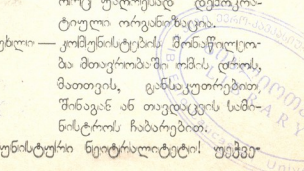 ორც უაღრესად დემოკრა-
ტიული ორგანიზაცია.
— კომუნისტების მონაწილეო-
ბა მთავრობაში ომის, დროს,
მათთვის, განსაკუთრებით,
შინაგან ან თავდაცვის სამი-
ნისტროს ჩაბარებით.
უნისტური ნეიტრალიტეტი! უეჭვე-